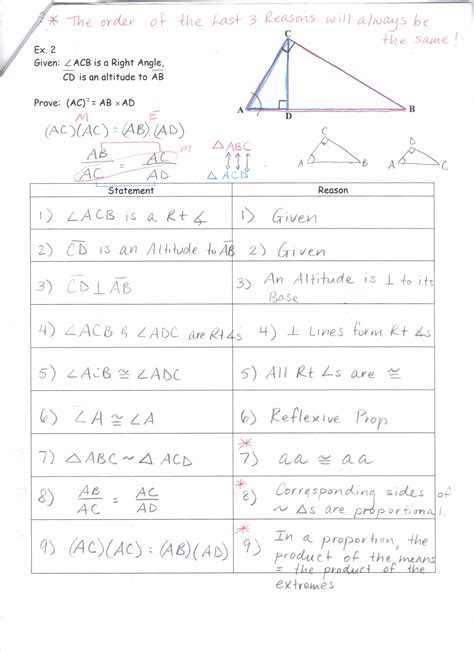 * The order of the Last 3 Reasons will always be
the same!
Ex. 2
Given: ∠ACB is a Right Angle,
CD is an altitude to AB
Prove: (AC)² = AB × AD
M E
(AC)(AC) = (AB)(AD)
AB/AC = AC/AD M
△ABC
△ACD
C
A D B
C
A B
D
A C
Statement Reason
1) ∠ACB is a Rt ∡ 1) Given
2) CD is an Altitude to AB 2) Given
3) CD ⊥ AB 3) An Altitude is ⊥ to its
Base
4) ∠ACB & ∠ADC are Rt ∡s 4) ⊥ Lines form Rt ∡s
5) ∠ACB ≅ ∠ADC 5) All Rt ∠s are ≅
6) ∠A ≅ ∠A 6) Reflexive Prop
7) △ABC ~ △ACD * 7) aa ≅ aa
8) AB/AC = AC/AD * 8) Corresponding sides of
~ △s are proportional.
9) (AC)(AC) = (AB)(AD) * 9) In a proportion, the
product of the means
= the product of the
extremes